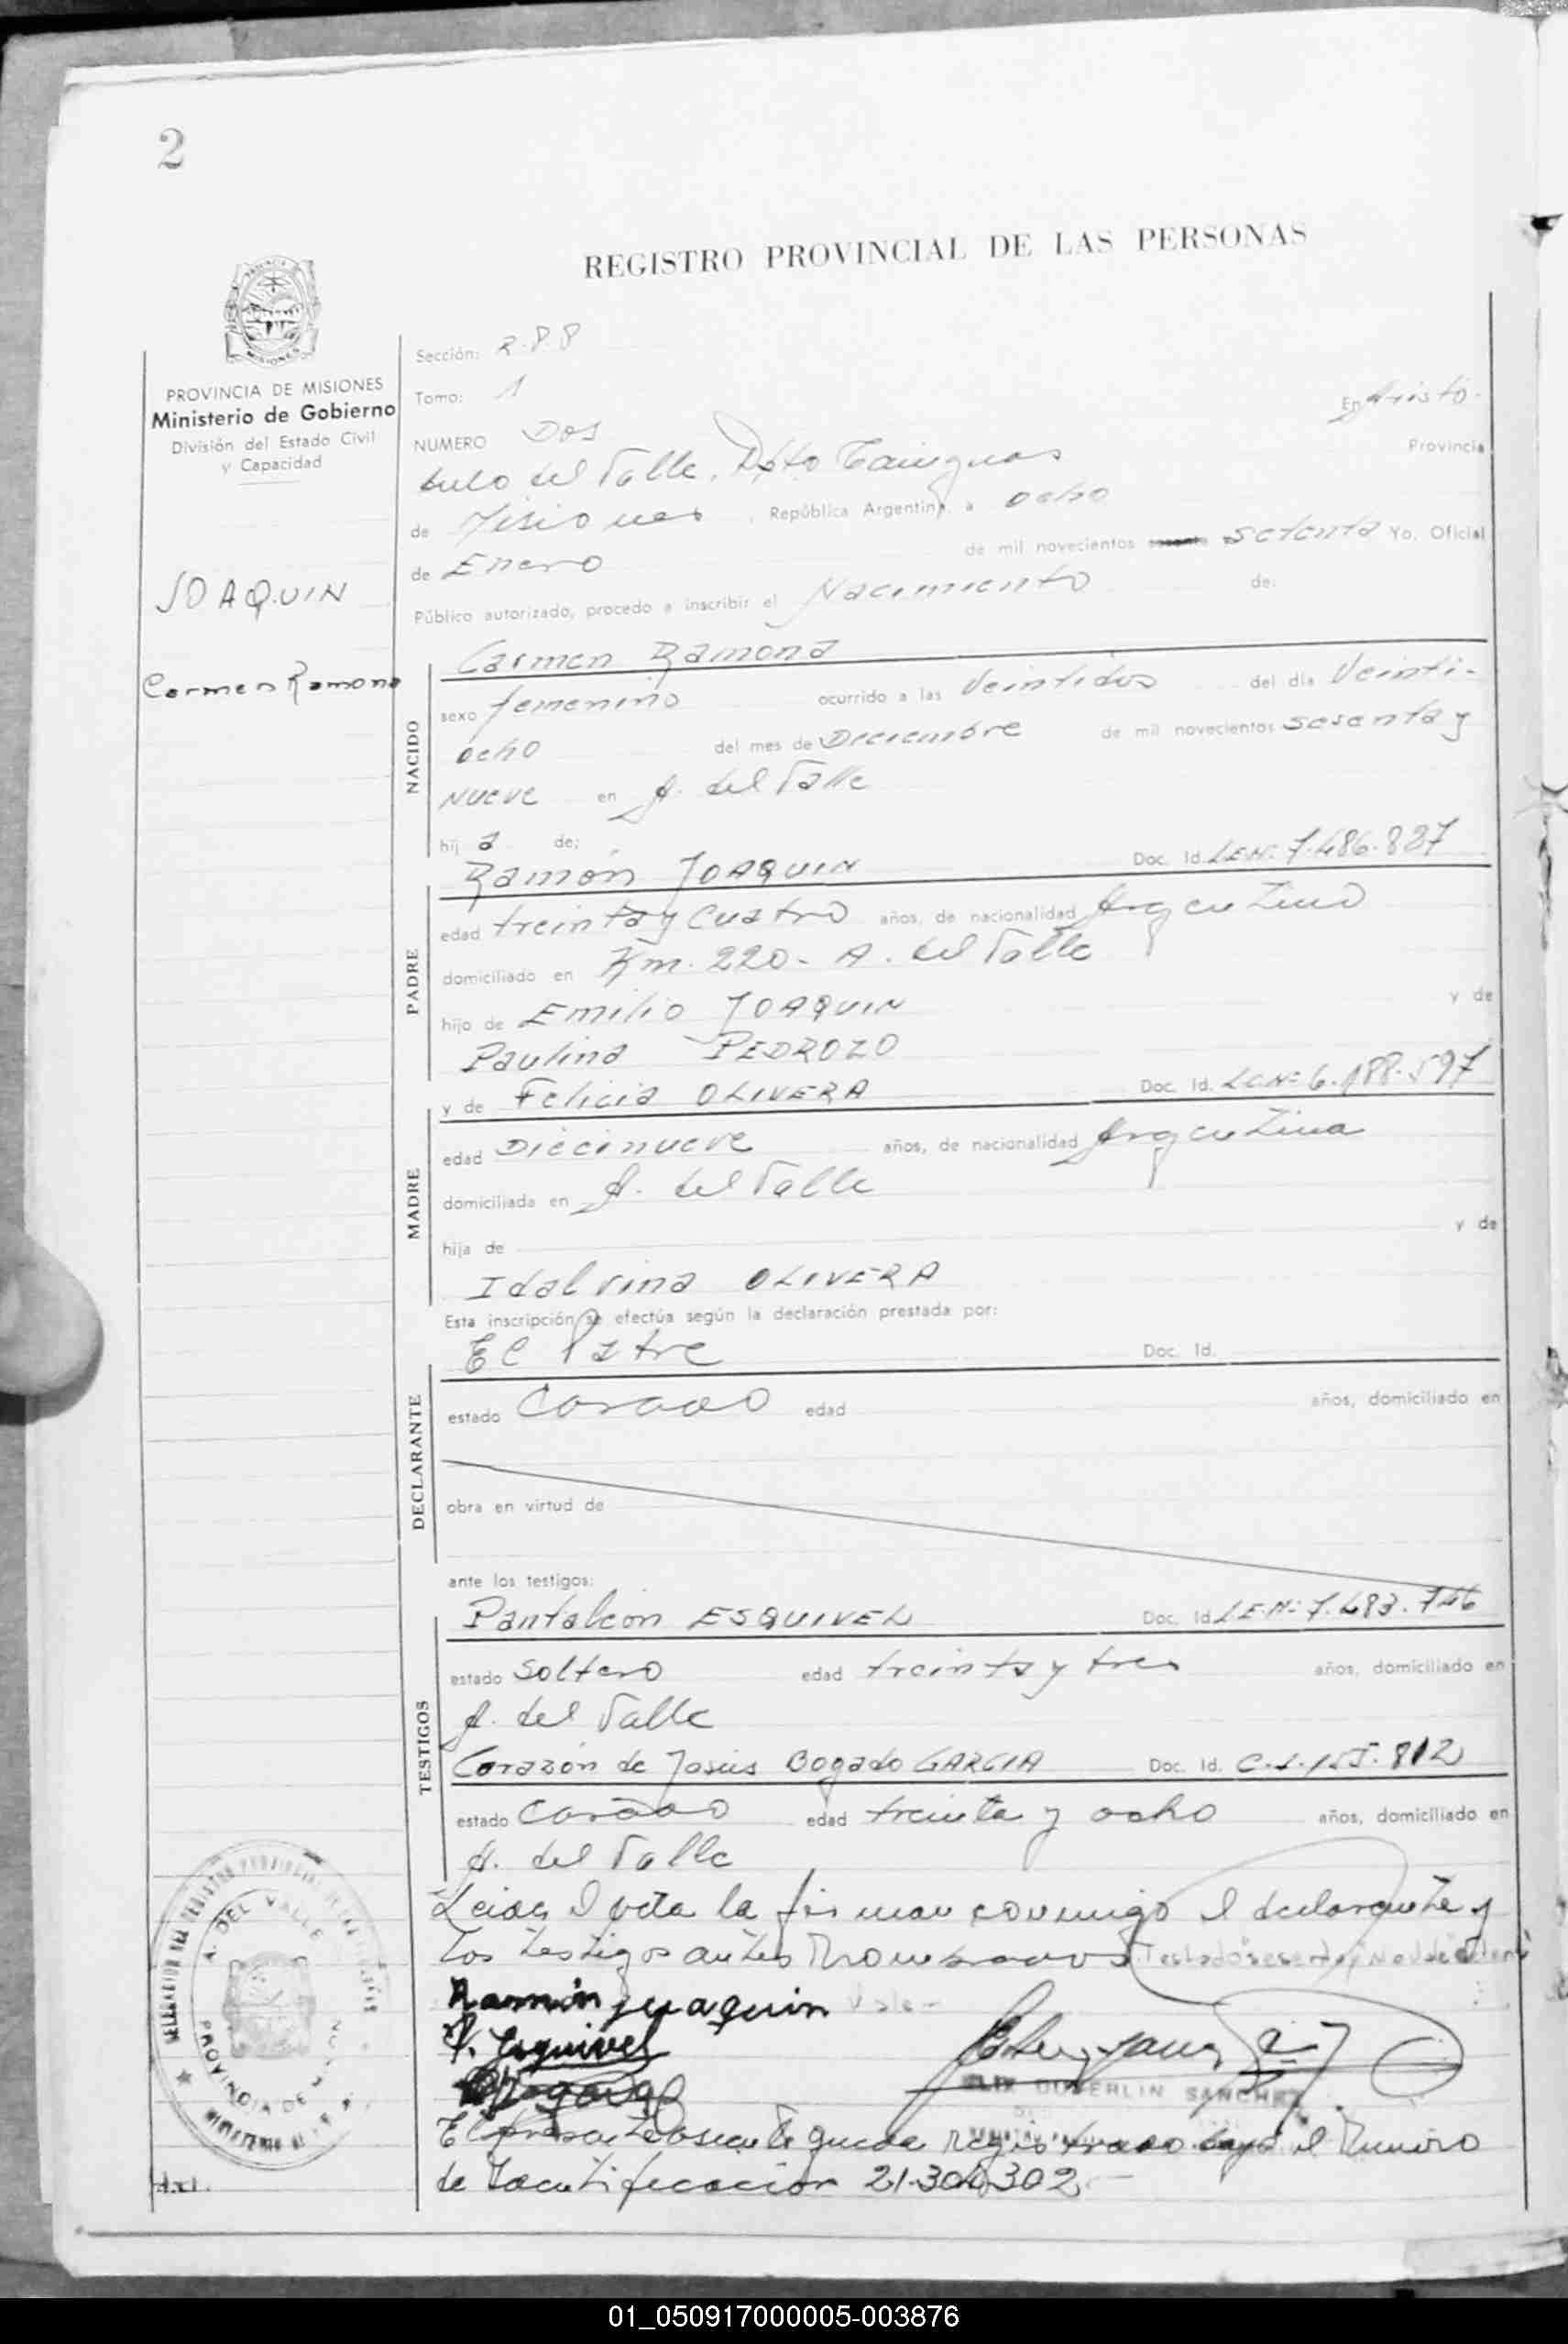 2
REGISTRO PROVINCIAL DE LAS PERSONAS
MISIONES
PROVINCIA DE MISIONES
Ministerio de Gobierno
División del Estado Civil
y Capacidad
JOAQUIN
Carmen Ramona
Sección: R.88
Tomo: 1
NUMERO Dos En Aristó-
bulo del Valle, Dpto Cainguas Provincia
de Misiones, República Argentina, a ocho
de Enero de mil novecientos setenta Yo, Oficial
Público autorizado, procedo a inscribir el Nacimiento de:
Carmen Ramona
NACIDO
sexo femenino ocurrido a las Veintidos del día Veinti-
ocho del mes de Diciembre de mil novecientos sesenta y
Nueve en A. del Valle
hij a de:
Ramón JOAQUIN Doc. Id. L.E.Nº 7.486.827
PADRE
edad treinta y cuatro años, de nacionalidad Argentino
domiciliado en Km. 220 - A. del Valle
hijo de Emilio JOAQUIN y de
Paulina PEDROZO
y de Felicia OLIVERA Doc. Id. L.C.Nº 6.188.597
MADRE
edad Diecinueve años, de nacionalidad Argentina
domiciliada en A. del Valle
hija de y de
Idalvina OLIVERA
Esta inscripción se efectúa según la declaración prestada por:
El Padre Doc. Id.
DECLARANTE
estado Casado edad años, domiciliado en
obra en virtud de
ante los testigos:
Pantaleon ESQUIVEL Doc. Id. L.E.Nº 7.483.746
TESTIGOS
estado Soltero edad treinta y tres años, domiciliado en
A. del Valle
Corazón de Jesús Bogado GARCIA Doc. Id. C.I. 155.812
estado Casado edad treinta y ocho años, domiciliado en
A. del Valle
Leida el acta la firman conmigo el declarante y
los testigos antes nombrados. Testado "sesenta" No vale
Vale-
Ramón Juaquin
P. Esquivel
SANCHEZ
A. DEL VALLE
PROVINCIA DE
El presente asiente queda registrado bajo el Numero
de Identificacion 21.304.302.-
01_050917000005-003876